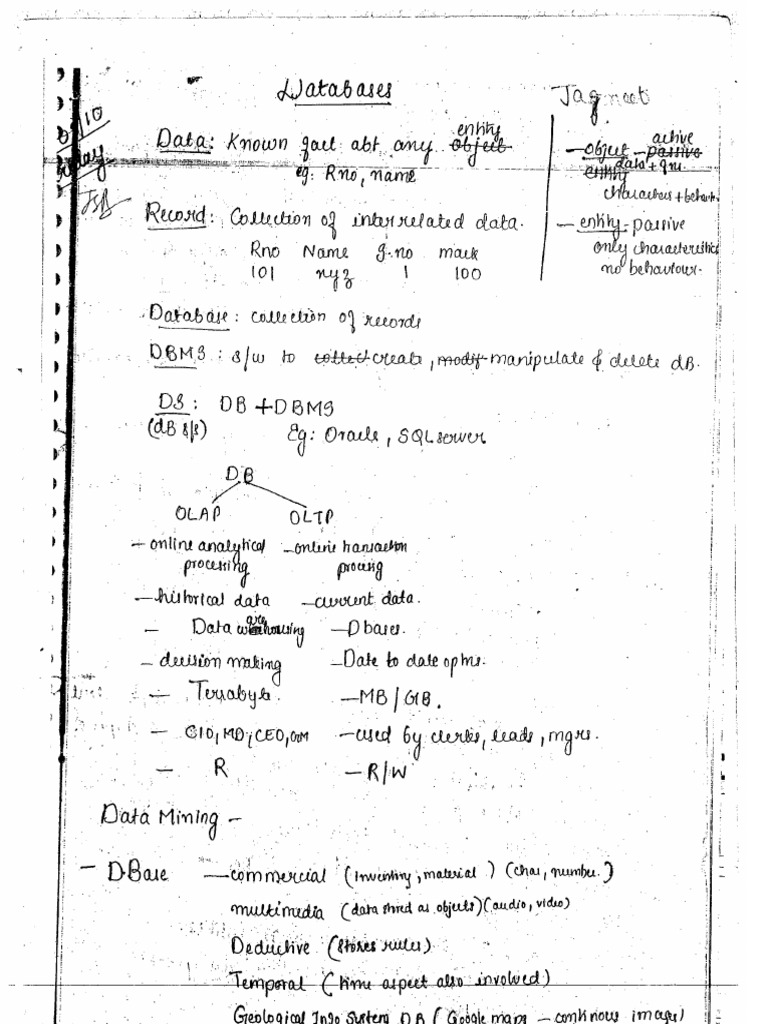 Databases
Jagneet
Data: Known fact abt any object entity
eg: Rno, name
Record: Collection of interrelated data.
Rno Name g.no mark
101 xyz 1 100
— object — passive active
data + qns.
entity
characters + behavr.
— entity - passive
only characteristics
no behaviour.
Database: collection of records
DBMS: s/w to collect create, modif manipulate & delete dB.
DS: DB + DBMS
(dB s/s) Eg: Oracle, SQL server
DB
OLAP OLTP
— online analytical — online transaction
processing procesig
— historical data — current data.
— Data warehousing — Dbases.
— decision making — Date to date optns.
— Terrabyte — MB / GB.
— CIO, MD, CEO, GM — used by clerks, leads, mgrs.
— R — R/W
Data Mining —
— DBase — commercial (inventry, material) (char, number.)
multimedia (data stred as objects) (audio, video)
Deductive (stores rules)
Temporal (time aspect also involved)
Geological Info System DB (Google maps — continous images)